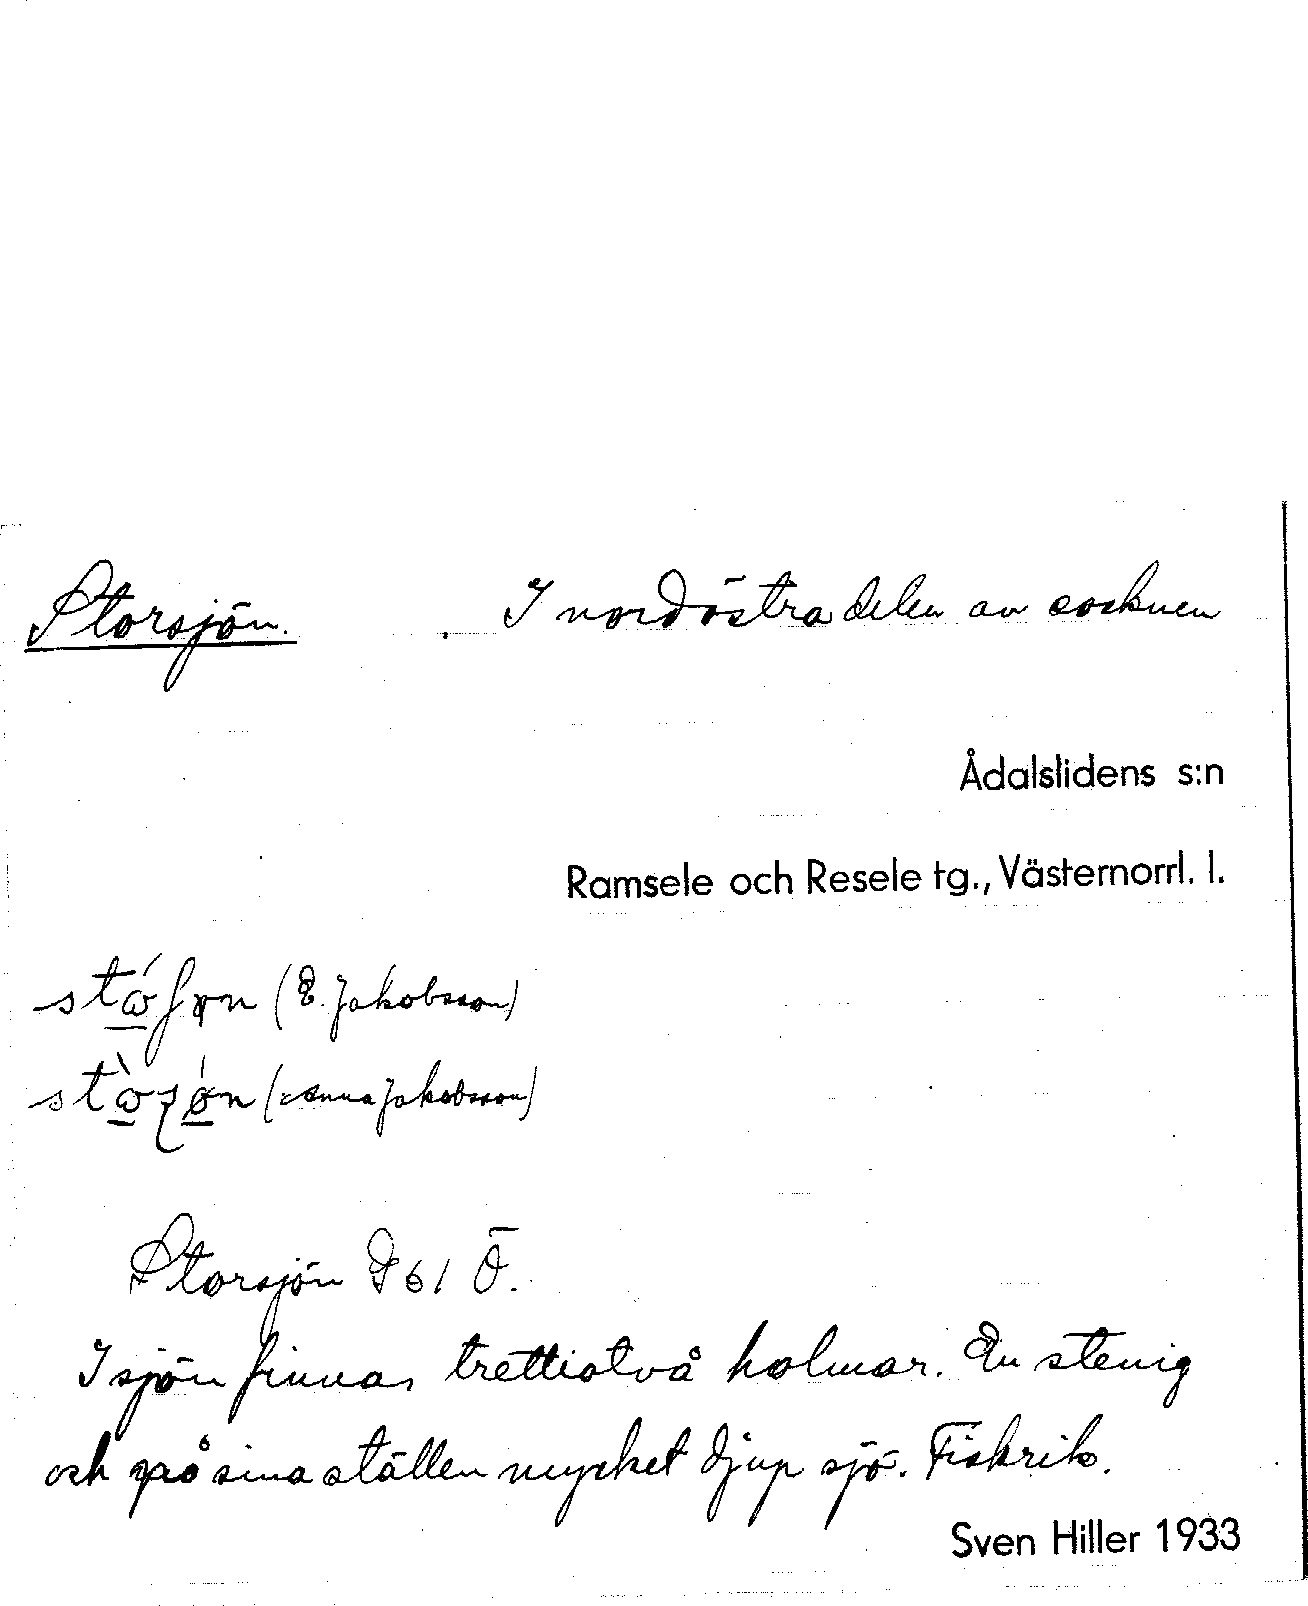 Storsjön. I nordöstra delen av socknen
Ådalslidens s:n
Ramsele och Resele tg., Västernorrl. l.
(E. Jakobsson)
(Anna Jakobsson)
Storsjön G 61 Ö.
I sjön finnas trettiotvå holmar. En stenig
och på sina ställen mycket djup sjö. Fiskrik.
Sven Hiller 1933